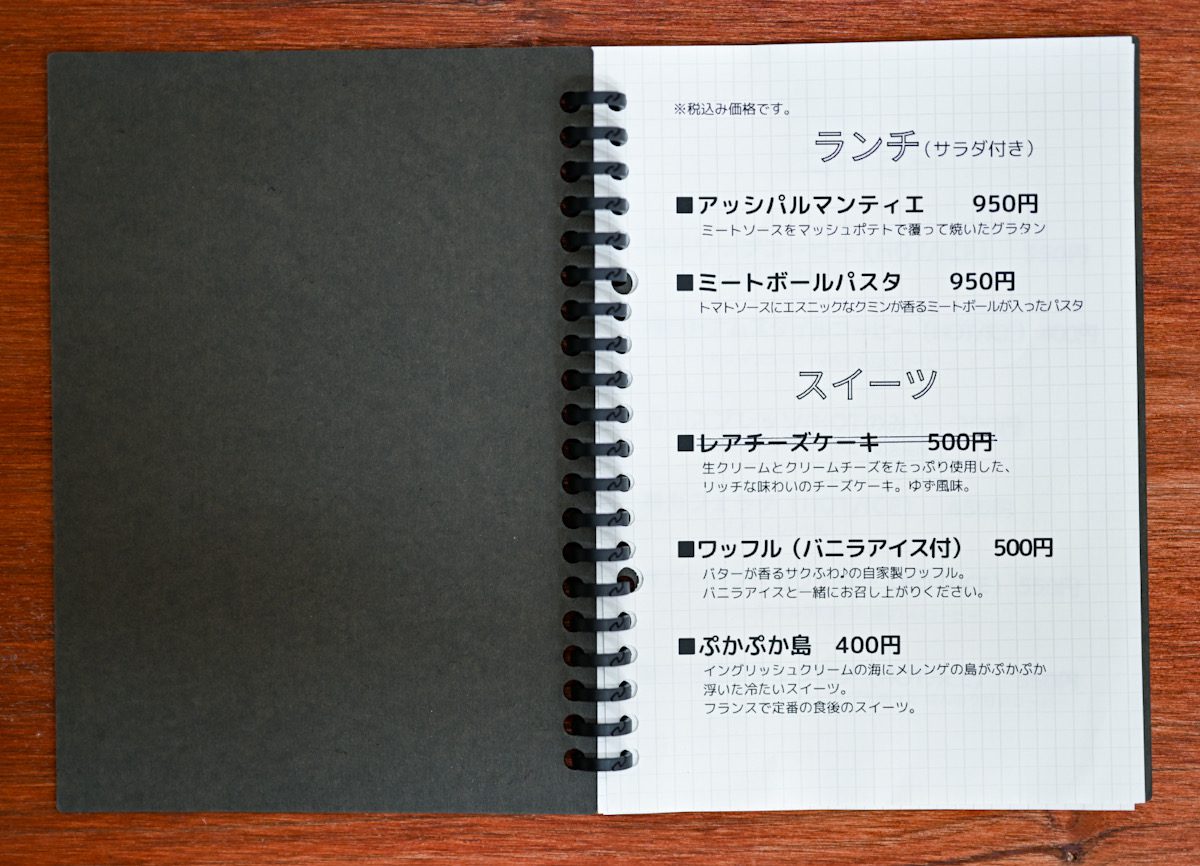 ※税込み価格です。
ランチ（サラダ付き）
■アッシパルマンティエ　　950円
ミートソースをマッシュポテトで覆って焼いたグラタン
■ミートボールパスタ　　950円
トマトソースにエスニックなクミンが香るミートボールが入ったパスタ
スイーツ
■レアチーズケーキ　　500円
生クリームとクリームチーズをたっぷり使用した、
リッチな味わいのチーズケーキ。ゆず風味。
■ワッフル（バニラアイス付）　500円
バターが香るサクふわ♪の自家製ワッフル。
バニラアイスと一緒にお召し上がりください。
■ぷかぷか島　400円
イングリッシュクリームの海にメレンゲの島がぷかぷか
浮いた冷たいスイーツ。
フランスで定番の食後のスイーツ。